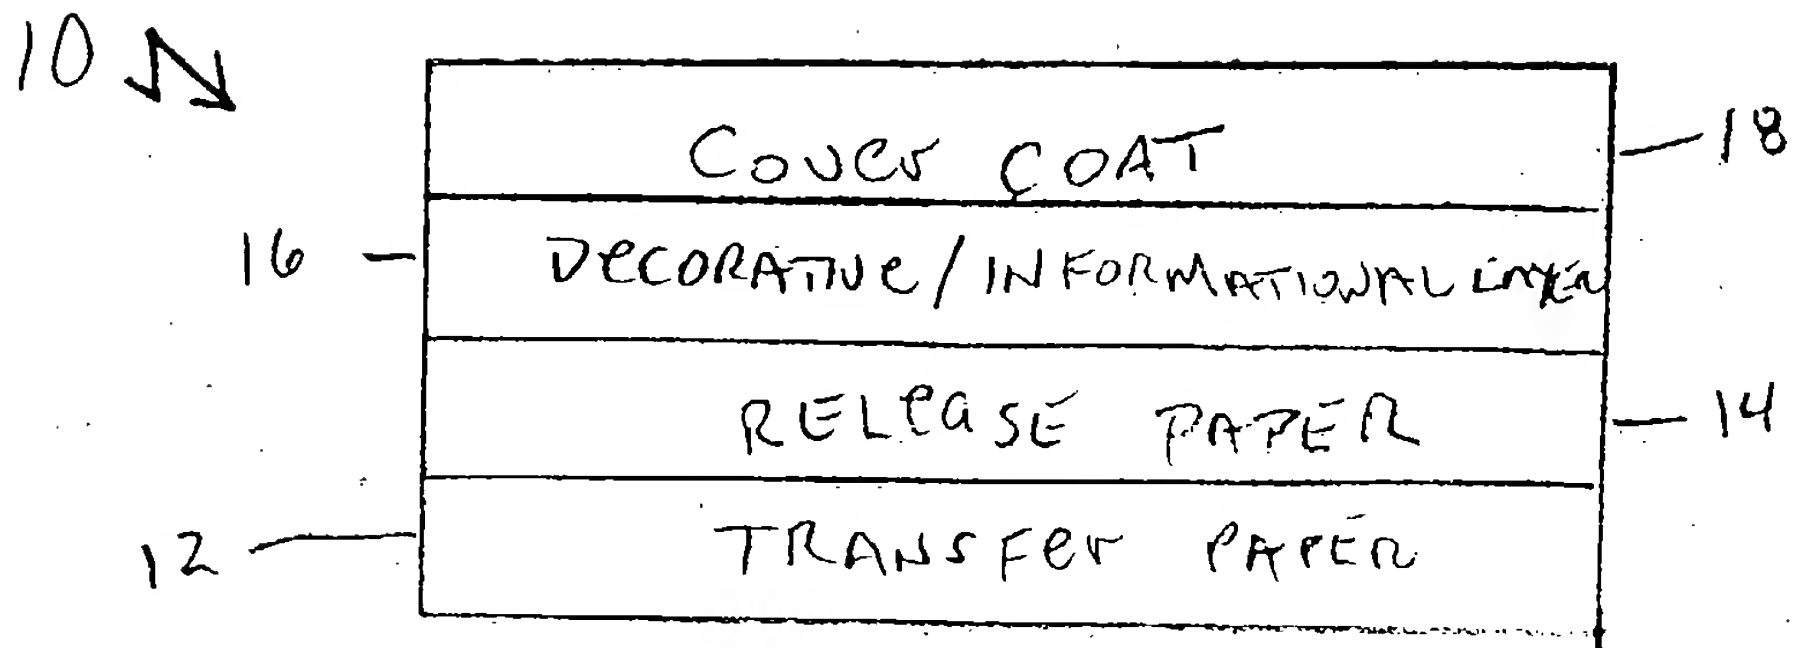 10
COVER COAT 18
16 DECORATIVE/INFORMATIONAL LAYER
RELEASE PAPER 14
12 TRANSFER PAPER